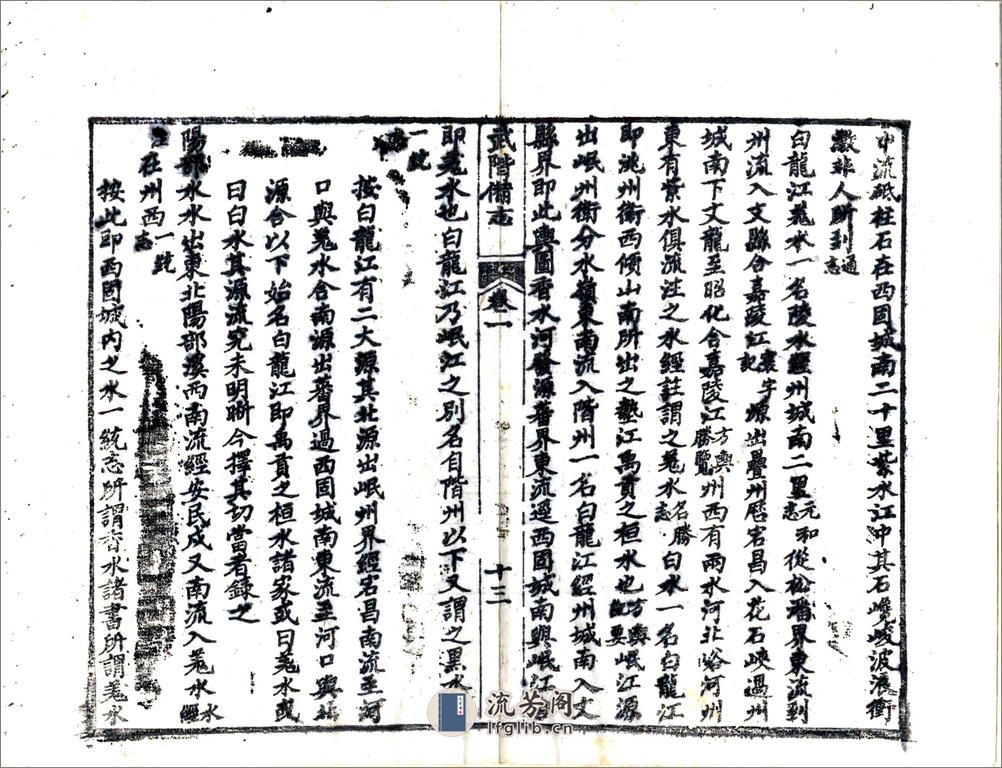 中流砥柱石在西固城南二十里紫水江中其石巉峻波浪衝
激非人所到通志
白龍江羌水一名陵水經州城南二里元和志從松潘界東流到
州流入文縣合嘉陵江寰宇記源出疊州歷宕昌入花石峽過州
城南下文龍至昭化合嘉陵江方輿勝覽州西有兩水河北峪河州
東有紫水俱流注之水經註謂之羌水名勝志白水一名白龍江
即洮州衛西傾山南所出之墊江禹貢之桓水也方輿紀要岷江源
出岷州衛分水嶺東南流入階州一名白龍江經州城南入文
縣界即此輿圖香水河發源蕃界東流逕西固城南與岷江合
武階備志 卷一 十三
即羌水也白龍江乃岷江之別名自階州以下又謂之黑水
一統志
按白龍江有二大源其北源出岷州界經宕昌南流至河
口與羌水合南源出蕃界過西固城南東流至河口與
源合以下始名白龍江即禹貢之桓水諸家或曰羌水或
曰白水其源流究未明晰今擇其切當者錄之
陽部水水出東北陽部溪西南流經安民戍又南流入羌水水經注
在州西一統志
按此即西固城內之水一統志所謂香水諸書所謂羌水
流芳阁
lfglib.cn